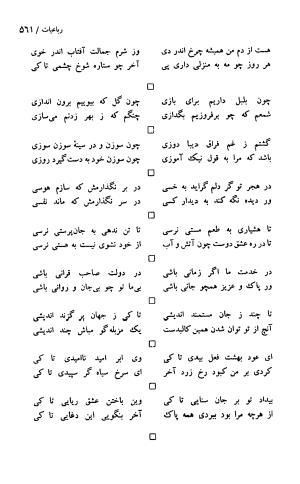 رباعیات / ۵۶۱
هست از دم من همیشه چرخ اندر دی وز شرم جمالت آفتاب اندر خوی
هر روز چو مه به منزلی داری پی آخر چو ستاره شوخ چشمی تا کی
چون بلبل داریم برای بازی چون گل که ببوییم برون اندازی
شمعم که چو برفروزیم بگدازی چنگم که ز بهر زدنم می‌سازی
گشتم ز غم فراق دیبا دوزی چون سوزن و در سینهٔ سوزن سوزی
باشد که مرا به قول نیک آموزی چون سوزن خود به دست‌گیرد روزی
در هجر تو گر دلم گراید به خسی در بر نگذارمش که سازم هوسی
ور دیده نگه کند به دیدار کسی در سر نگذارمش که ماند نفسی
تا هشیاری به طعم مستی نرسی تا تن ندهی به جان‌پرستی نرسی
تا در ره عشق دوست چون آتش و آب از خود نشوی نیست به هستی نرسی
در خدمت ما اگر زمانی باشی در دولت صاحب قرانی باشی
ور پاک و عزیز همچو جانی باشی بی‌ما تو چو بی‌جان و روانی باشی
تا چند ز جان مستمند اندیشی تا کی ز جهان پر گزند اندیشی
آنچ از تو توان شدن همین کالبدست یک مزبله‌گو مباش چند اندیشی
ای عود بهشت فعل بیدی تا کی وی ابر امید ناامیدی تا کی
کردی بر من کبود رخ زرد آخر ای سرخ سیاه گر سپیدی تا کی
بیداد تو بر جان سنایی تا کی وین باختن عشق ریایی تا کی
از هرچه مرا بود ببردی همه پاک آخر بنگویی این دغایی تا کی